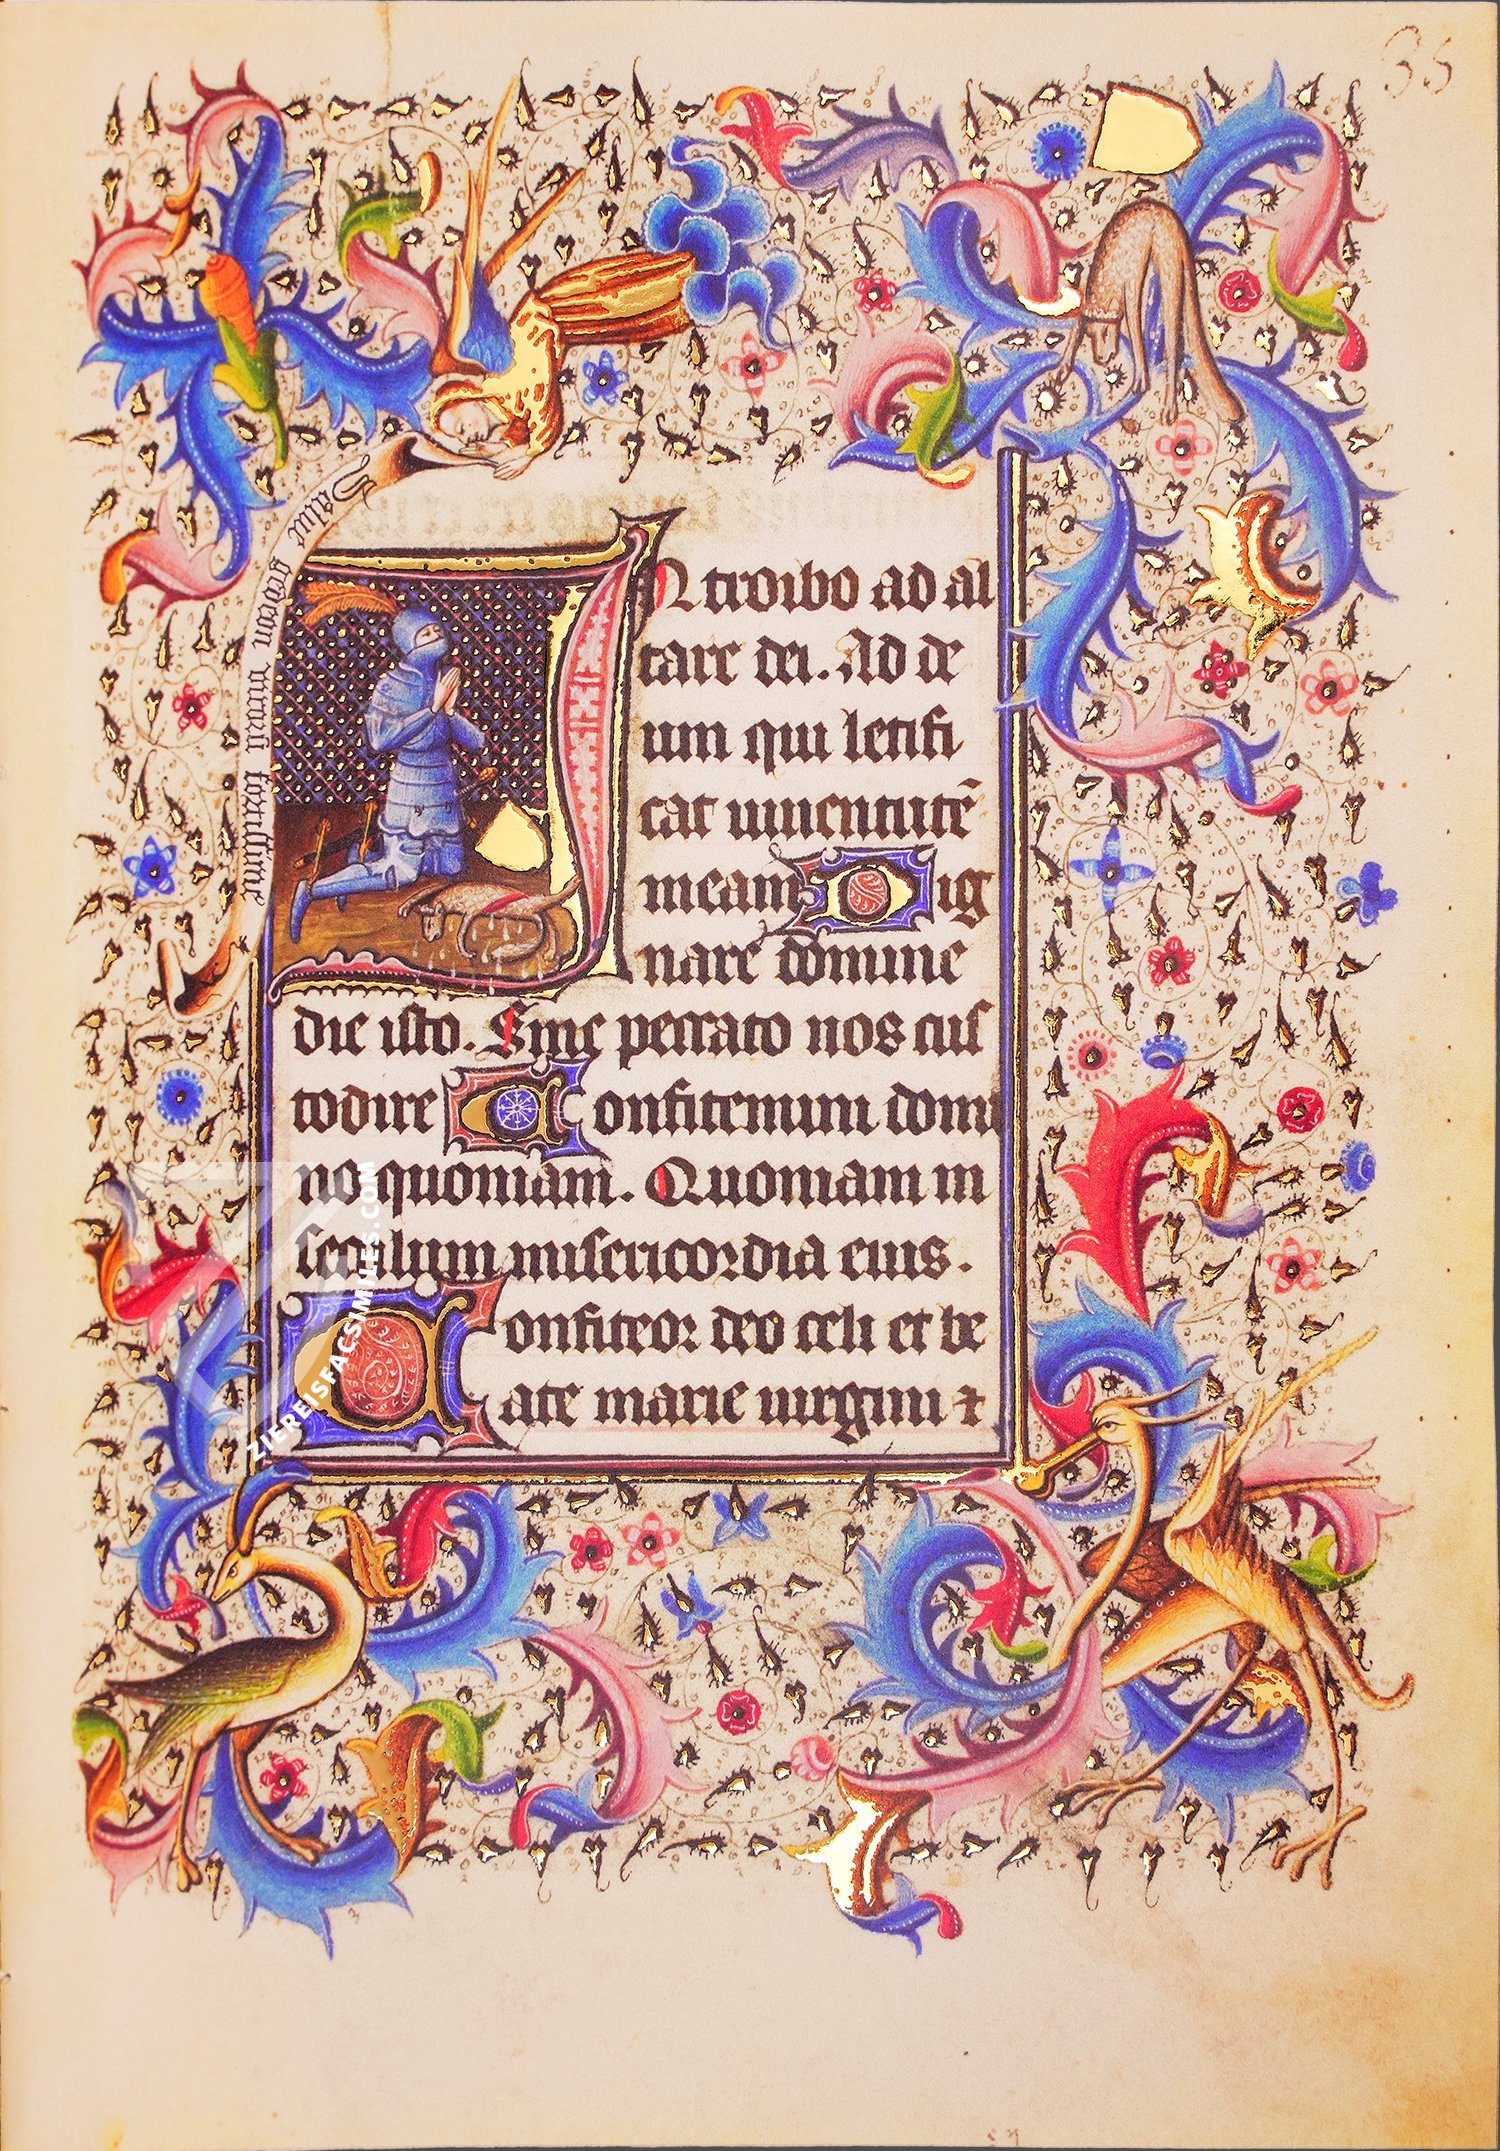 35
Salue gedeon fortissime
INtroibo ad al
tare dei. Ad de
um qui letifi
cat iuuentutē
meam Dig
nare domine
die isto. Sine peccato nos cus
todire Confitemini domi
no quoniam. Quoniam in
seculum misericordia eius.
Confiteor deo celi et be
ate marie uirgini ⁊
ZIEREISFACSIMILES.COM